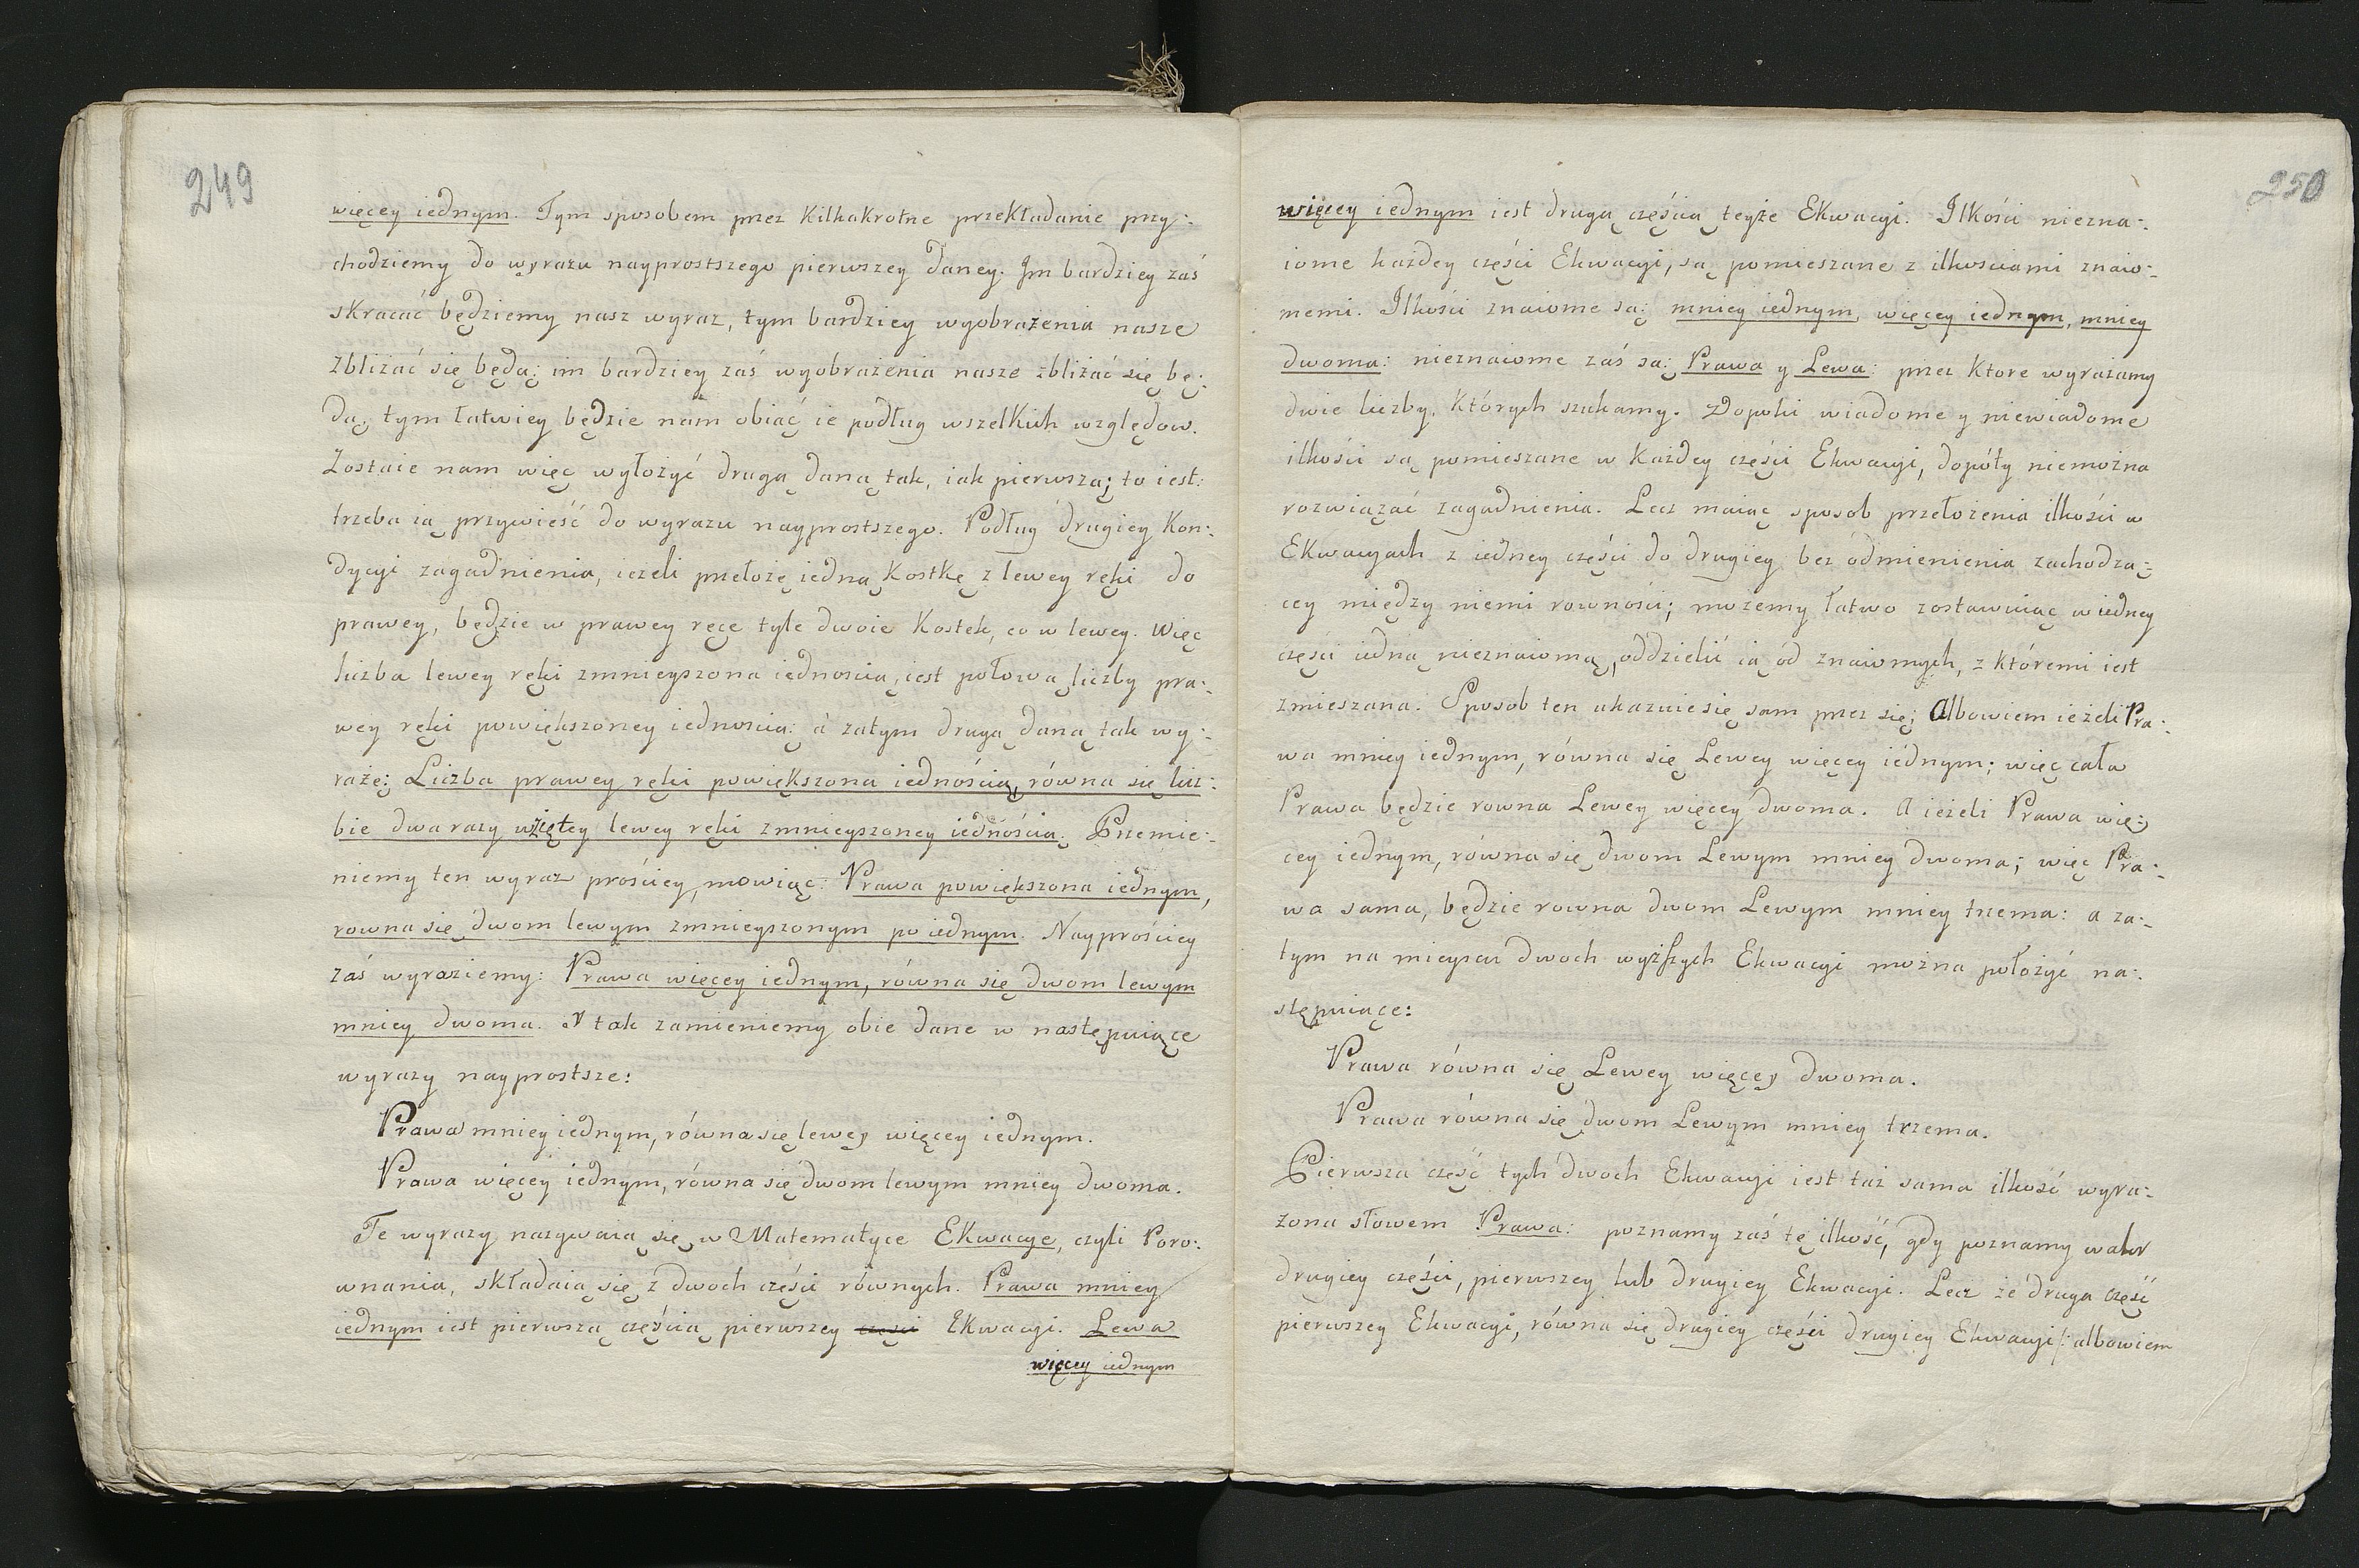 249
więcey iednym. Tym sposobem przez kilkakrotne przekładanie przy-:
chodziemy do wyrazu nayprostszego pierwszey daney. Im bardziey zaś
skracać będziemy nasz wyraz, tym bardziey wyobrażenia nasze
zbliżać się będą; im bardziey zaś wyobrażenia nasze zbliżać się bę-:
dą, tym łatwiey będzie nam obiąć ie podług wszelkich względow.
Zostaie nam więc wyłożyć drugą daną tak, iak pierwszą; to iest:
trzeba ią przywieść do wyrazu nayprostszego. Podług drugiey Kon-:
dycyi zagadnienia, ieżeli przełożę iedną kostkę z lewey ręki do
prawey, będzie w prawey ręce tyle dwoie kostek, co w lewey. Więc
liczba lewey ręki zmnieyszona iednością, iest połową liczby pra-:
wey ręki powiększoney iednością: a zatym drugą daną tak wy-:
rażę: Liczba prawey ręki powiększona iednością, równa się licz-:
bie dwa razy wziętey lewey ręki zmnieyszoney iednością. Przemie-:
niemy ten wyraz prościey, mowiąc: Prawa powiększona iednym,
rowna się dwom lewym zmnieyszonym po iednym. Nayprościey
zaś wyraziemy: Prawa więcey iednym, równa się dwom lewym
mniey dwoma. Y tak zamieniemy obie dane w następuiące
wyrazy nayprostsze:
Prawa mniey iednym, równa się lewey więcey iednym.
Prawa więcey iednym, równa się dwom lewym mniey dwoma.
Te wyrazy nazywaią się w Matematyce Ekwacye, czyli Poro-:
wnania, składaią się z dwoch części równych. Prawa mniey
iednym iest pierwszą częścią pierwszey części Ekwacyi. Lewa
więcey iednym
250
więcey iednym iest drugą częścią teyże Ekwacyi. Ilkości niezna-:
iome każdey części Ekwacyi, są pomieszane z ilkościami znaio-:
memi. Ilkości znaiome są: mniey iednym, więcey iednym, mniey
dwoma: nieznaiome zaś są: Prawa y Lewa: przez ktore wyrażamy
dwie liczby, których szukamy. Dopoki wiadome y niewiadome
ilkości są pomieszane w każdey części Ekwacyi, dopóty niemożna
rozwiązać zagadnienia. Lecz maiąc sposob przełożenia ilkości w
Ekwacyach z iedney części do drugiey bez odmienienia zachodzą-:
cey między niemi rowności; możemy łatwo zostawuiąc w iedney
części iedną nieznaiomą, oddzielić ią od znaiomych, z któremi iest
zmieszana. Sposob ten ukazuie się sam przez się; Albowiem ieżeli Pra-:
wa mniey iednym, równa się Lewey więcey iednym; więc cała
Prawa będzie rowna Lewey więcey dwoma. A ieżeli Prawa wię-:
cey iednym, równa się dwom Lewym mniey dwoma; więc Pra-:
wa sama, będzie rowna dwom Lewym mniey trzema: a za-:
tym na mieyscu dwoch wyższych Ekwacyi można położyć na-:
stępuiące:
Prawa równa się Lewey więcey dwoma.
Prawa równa się dwom Lewym mniey trzema.
Pierwsza część tych dwoch Ekwacyi iest taż sama ilkość wyra-:
żona słowem Prawa: poznamy zaś tę ilkość, gdy poznamy walor
drugiey części, pierwszey lub drugiey Ekwacyi. Lecz że druga część
pierwszey Ekwacyi, równa się drugiey części drugiey Ekwacyi /: albowiem